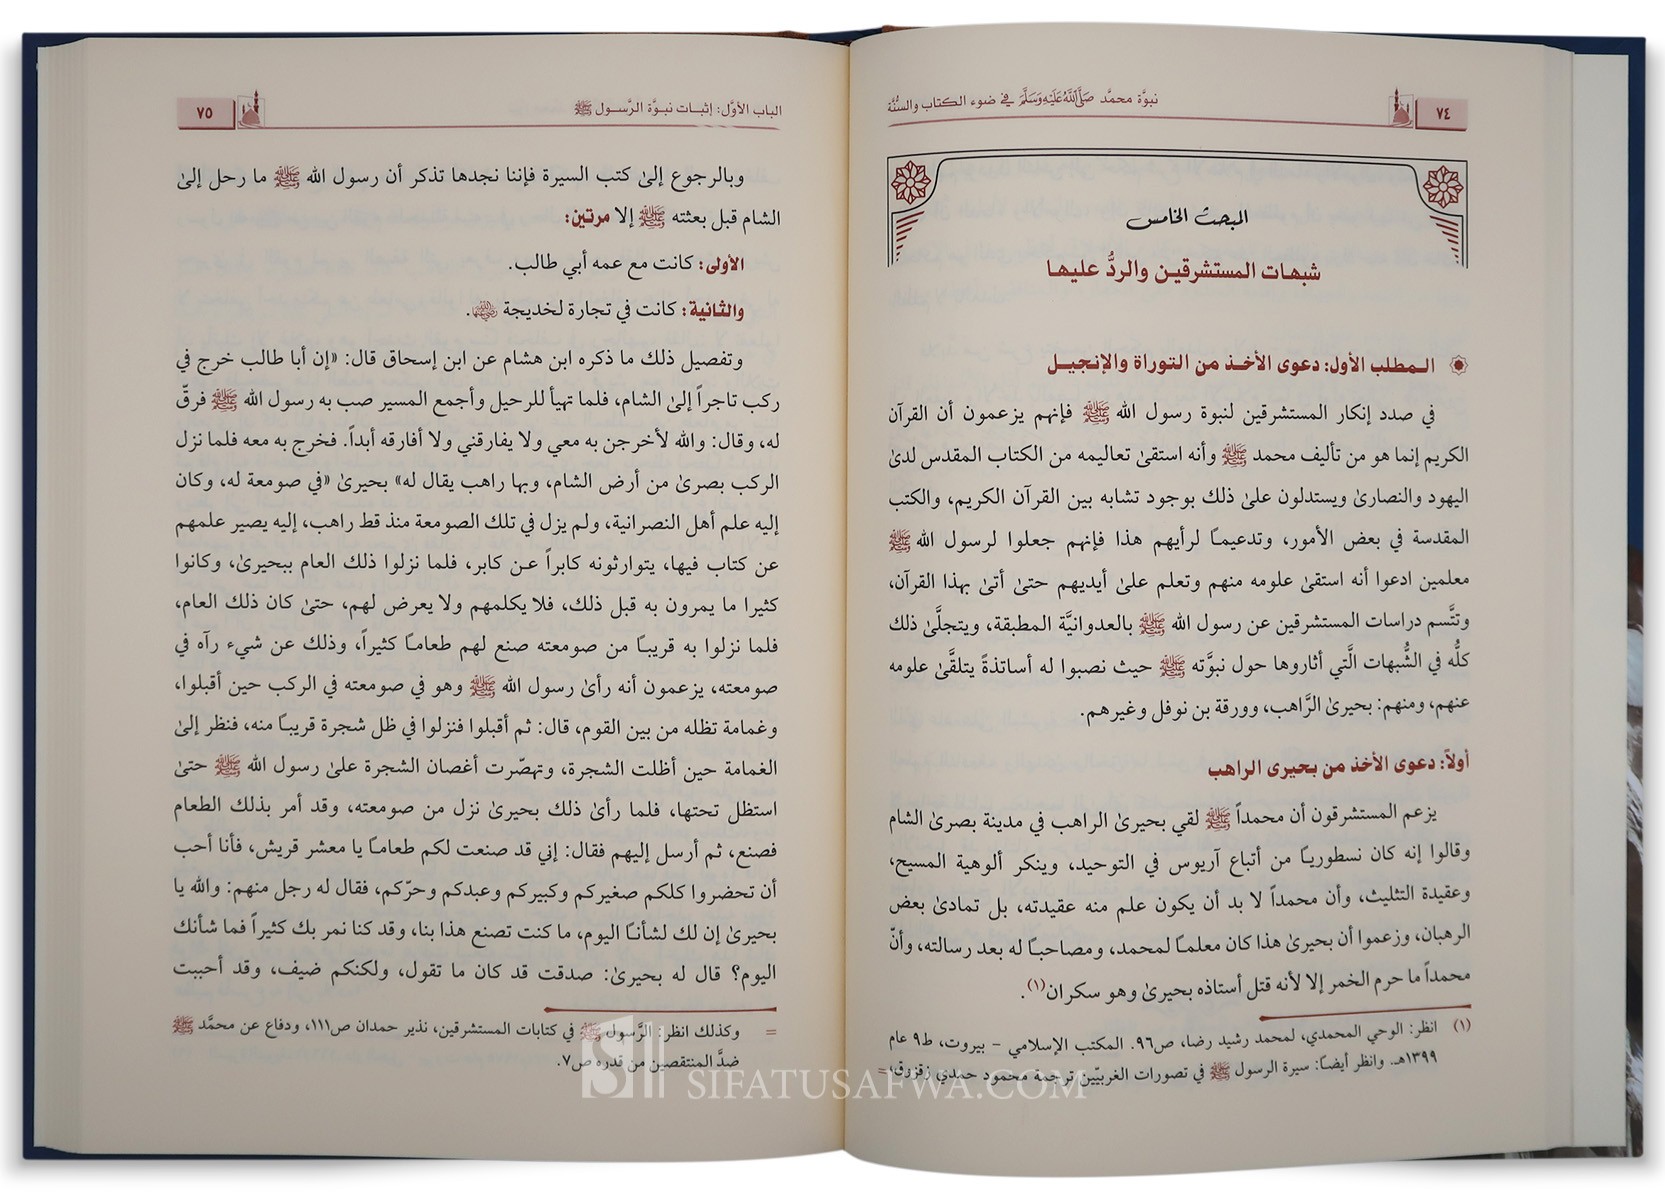 نبوَّة محمَّد صَلَّى اللَّهُ عَلَيْهِ وَسَلَّمَ في ضوء الكتاب والسُّنَّة
٧٤
المبحث الخامس
شبهات المستشرقين والردُّ عليها
المطلب الأول: دعوى الأخذ من التوراة والإنجيل
في صدد إنكار المستشرقين لنبوة رسول الله ﷺ فإنهم يزعمون أن القرآن
الكريم إنما هو من تأليف محمد ﷺ وأنه استقىٰ تعاليمه من الكتاب المقدس لدىٰ
اليهود والنصارىٰ ويستدلون علىٰ ذلك بوجود تشابه بين القرآن الكريم، والكتب
المقدسة في بعض الأمور، وتدعيمًا لرأيهم هذا فإنهم جعلوا لرسول الله ﷺ
معلمين ادعوا أنه استقىٰ علومه منهم وتعلم علىٰ أيديهم حتىٰ أتىٰ بهذا القرآن،
وتتَّسم دراسات المستشرقين عن رسول الله ﷺ بالعدوانيَّة المطبقة، ويتجلَّىٰ ذلك
كلُّه في الشُّبهات الَّتي أثاروها حول نبوَّته ﷺ حيث نصبوا له أساتذةً يتلقَّىٰ علومه
عنهم، ومنهم: بحيرىٰ الرَّاهب، وورقة بن نوفل وغيرهم.
أولاً: دعوى الأخذ من بحيرى الراهب
يزعم المستشرقون أن محمداً ﷺ لقي بحيرىٰ الراهب في مدينة بصرىٰ الشام
وقالوا إنه كان نسطوريًا من أتباع آريوس في التوحيد، وينكر ألوهية المسيح،
وعقيدة التثليث، وأن محمداً لا بد أن يكون علم منه عقيدته، بل تمادىٰ بعض
الرهبان، وزعموا أن بحيرىٰ هذا كان معلمًا لمحمد، ومصاحبًا له بعد رسالته، وأنّ
محمداً ما حرم الخمر إلا لأنه قتل أستاذه بحيرىٰ وهو سكران(١).
(١) انظر: الوحي المحمدي، لمحمد رشيد رضا، ص٩٦. المكتب الإسلامي - بيروت، ط٩ عام
١٣٩٩هـ. وانظر أيضًا: سيرة الرسول ﷺ في تصورات الغربيّين ترجمة محمود حمدي زقزوق، =
الباب الأوَّل: إثبات نبوَّة الرَّسول ﷺ
٧٥
وبالرجوع إلىٰ كتب السيرة فإننا نجدها تذكر أن رسول الله ﷺ ما رحل إلىٰ
الشام قبل بعثته ﷺ إلا مرتين:
الأولى: كانت مع عمه أبي طالب.
والثانية: كانت في تجارة لخديجة رضي الله عنها.
وتفصيل ذلك ما ذكره ابن هشام عن ابن إسحاق قال: «إن أبا طالب خرج في
ركب تاجراً إلىٰ الشام، فلما تهيأ للرحيل وأجمع المسير صب به رسول الله ﷺ فرقّ
له، وقال: والله لأخرجن به معي ولا يفارقني ولا أفارقه أبداً. فخرج به معه فلما نزل
الركب بصرىٰ من أرض الشام، وبها راهب يقال له» بحيرىٰ «في صومعة له، وكان
إليه علم أهل النصرانية، ولم يزل في تلك الصومعة منذ قط راهب، إليه يصير علمهم
عن كتاب فيها، يتوارثونه كابراً عن كابر، فلما نزلوا ذلك العام ببحيرىٰ، وكانوا
كثيرا ما يمرون به قبل ذلك، فلا يكلمهم ولا يعرض لهم، حتىٰ كان ذلك العام،
فلما نزلوا به قريبًا من صومعته صنع لهم طعامًا كثيراً، وذلك عن شيء رآه في
صومعته، يزعمون أنه رأىٰ رسول الله ﷺ وهو في صومعته في الركب حين أقبلوا،
وغمامة تظله من بين القوم، قال: ثم أقبلوا فنزلوا في ظل شجرة قريبًا منه، فنظر إلىٰ
الغمامة حين أظلت الشجرة، وتهصّرت أغصان الشجرة علىٰ رسول الله ﷺ حتىٰ
استظل تحتها، فلما رأىٰ ذلك بحيرىٰ نزل من صومعته، وقد أمر بذلك الطعام
فصنع، ثم أرسل إليهم فقال: إني قد صنعت لكم طعامًا يا معشر قريش، فأنا أحب
أن تحضروا كلكم صغيركم وكبيركم وعبدكم وحرّكم، فقال له رجل منهم: والله يا
بحيرىٰ إن لك لشأنًا اليوم، ما كنت تصنع هذا بنا، وقد كنا نمر بك كثيراً فما شأنك
اليوم؟ قال له بحيرىٰ: صدقت قد كان ما تقول، ولكنكم ضيف، وقد أحببت
= وكذلك انظر: الرَّسول ﷺ في كتابات المستشرقين، نذير حمدان ص١١١، ودفاع عن محمَّد ﷺ
ضدَّ المنتقصين من قدره ص٧.
SIFATUSAFWA.COM